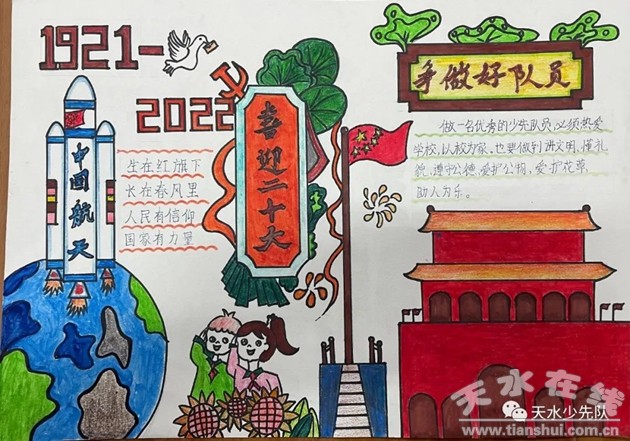 1921-
2022
喜迎二十大
中国航天
生在红旗下
长在春风里
人民有信仰
国家有力量
争做好队员
做一名优秀的少先队员,必须热爱
学校,以校为家。也要做到讲文明、懂礼
貌、遵守公德、爱护公物、爱护花草、
助人为乐。
天水在线
天水少先队
www.tianshui.com.cn